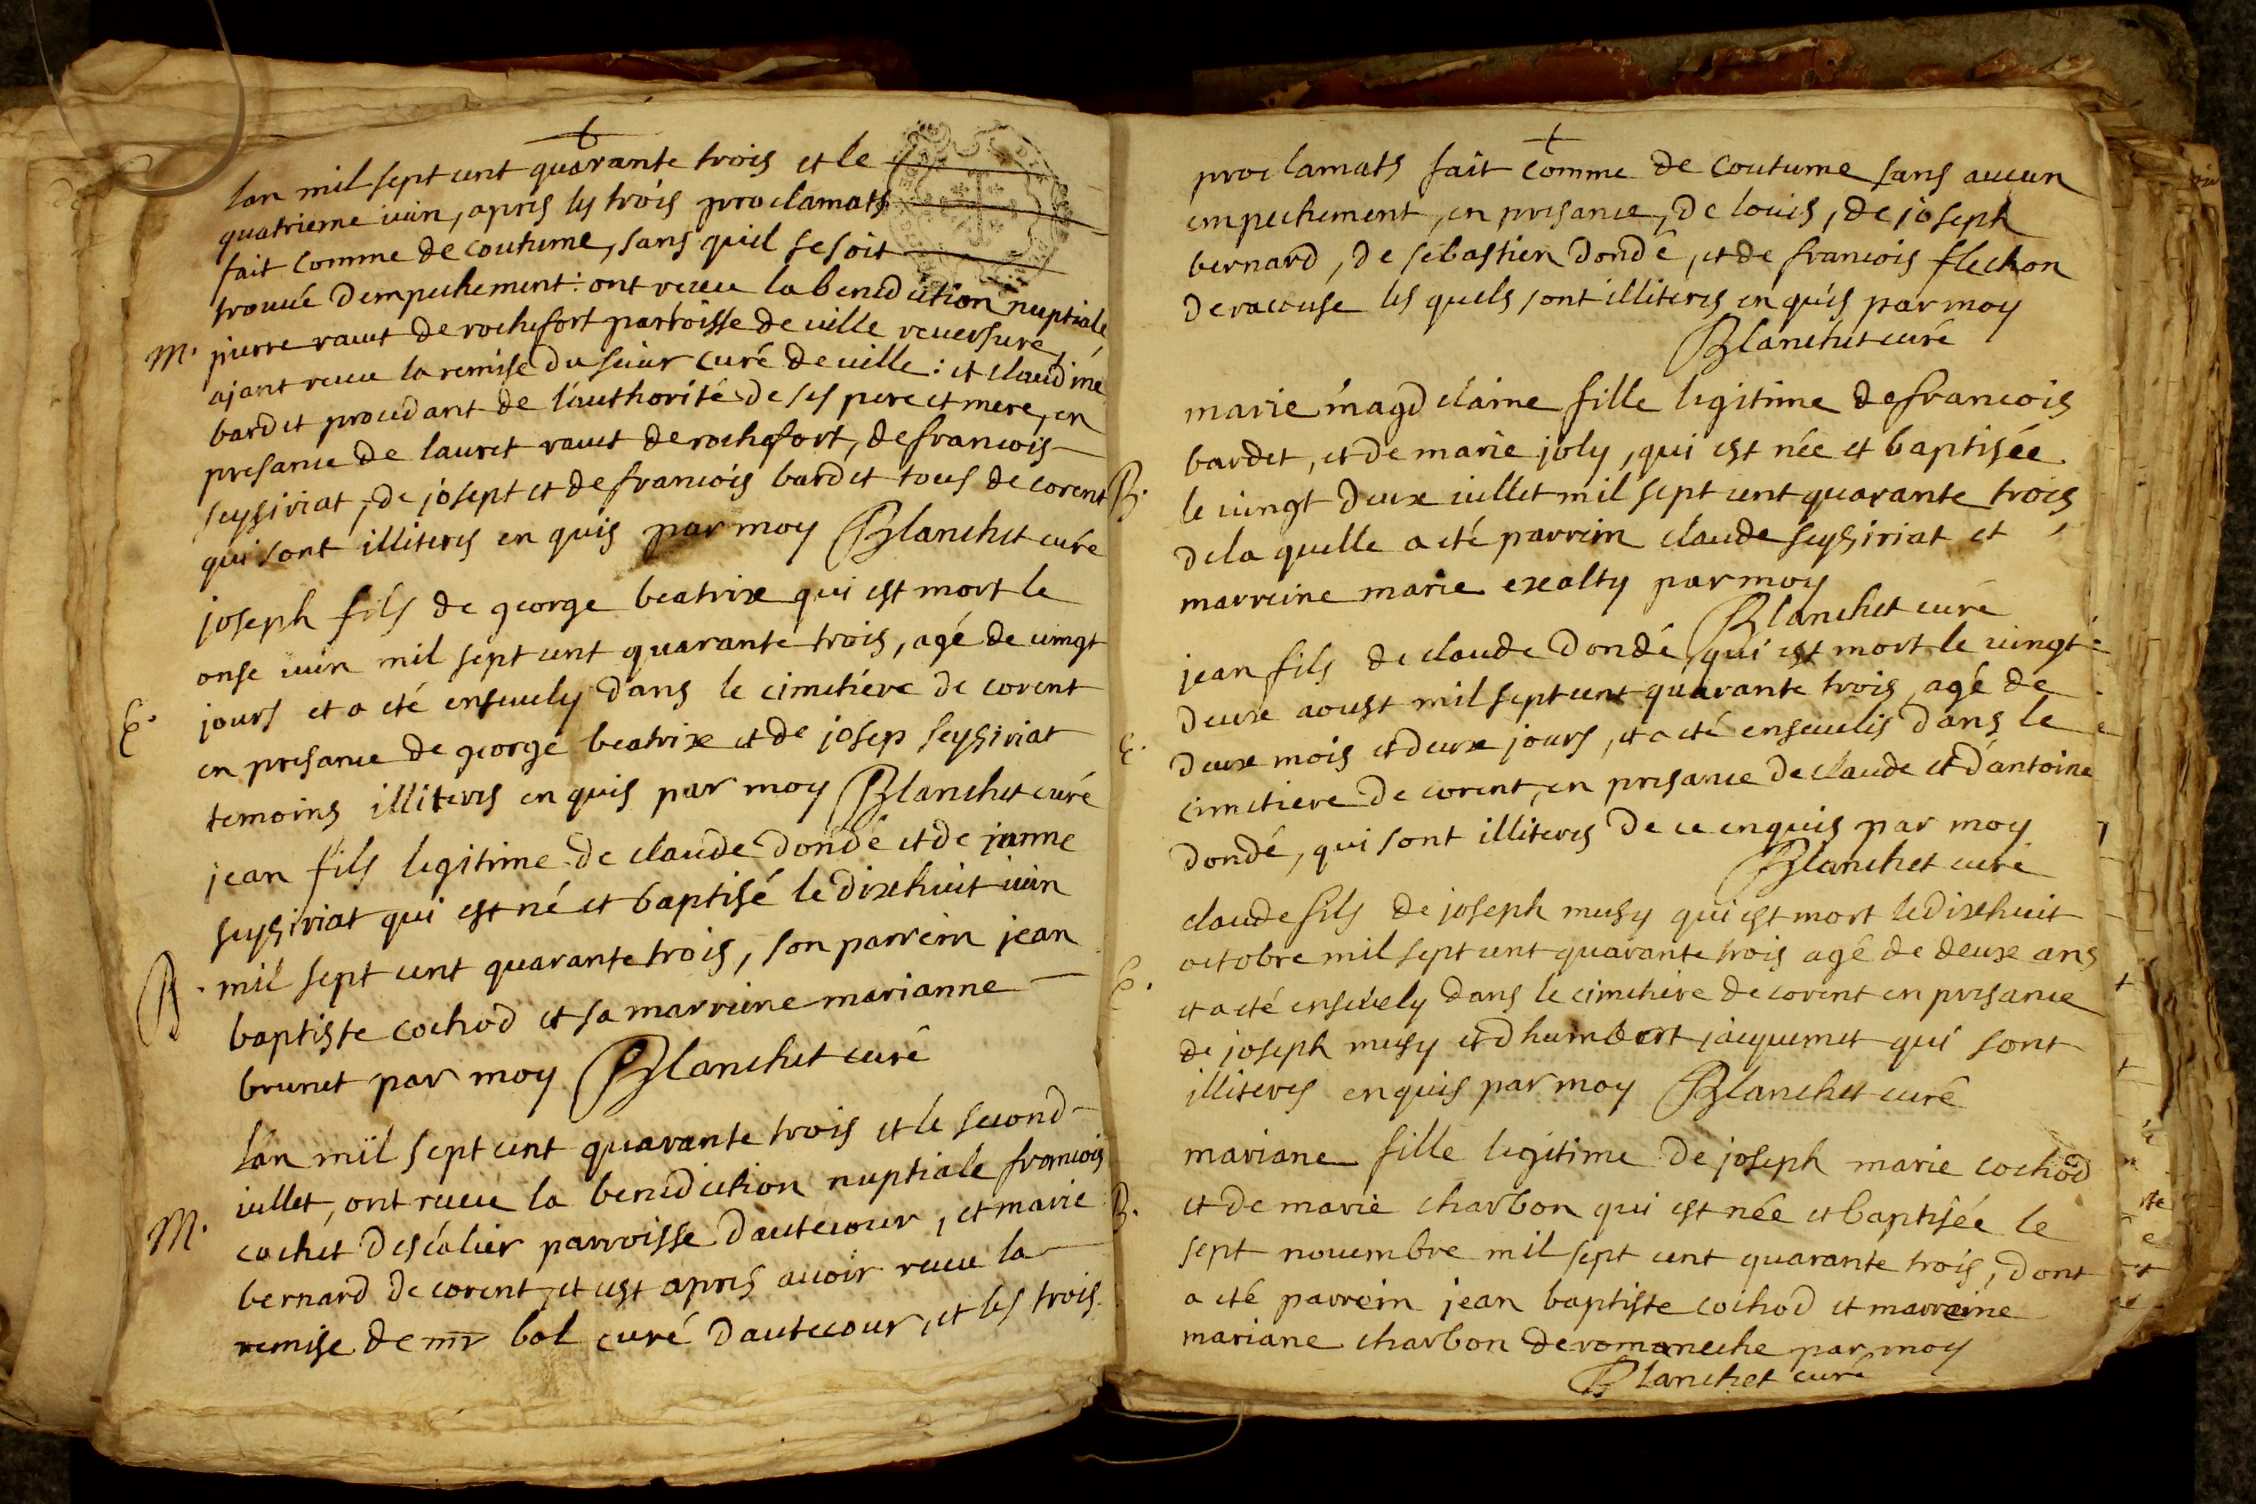 lan mil sept cent quarante trois et le
quatrieme iuin, apres les trois proclamats
fait comme de coutume, sans quil se soit
trouué dempechement: ont receu la benediction nuptiale
M. pierre rauet de rochefort parroisse de uille reuersure,
ajant receu la remise du sieur curé de uille: et claudine
bardet procedant de l'authorité de ses pere et mere, en
presance de lauret rauet de rochefort, de francois
seysiriat, de josept et de francois bardet tous de corent
qui sont illiteres en quis par moy Blanchet curé
joseph fils de george beatrix qui est mort le
onse iuin mil sept cent quarante trois, agé de uingt
E. jours et a eté enseuely dans le cimetiére de corent
en presance de george beatrix et de josep seysiriat
temoins illiteres en quis par moy Blanchet curé
jean fils legitime de claude dondé et de janne
seysiriat qui est né et baptisé le dixhuit iuin
B. mil sept cent quarante trois, son parrein jean
baptiste cochod et sa marreine marianne
brunet par moy Blanchet curé
l'an mil sept cent quarante trois et le second
iullet, ont receu la benediction nuptiale francois
M. cochet descalier parroisse dautecour, et marie
bernard de corent, et cest apres auoir receu la
remise de mr bal curé dautecour, et les trois
proclamats fait comme de coutume sans aucun
empechement, en presance, de louis, de joseph
bernard, de sebastien dondé, et de francois flechon
de racouse les quels sont illiteres en quis par moy
Blanchet curé
marie magdelaine fille legitime de francois
bardet, et de marie joly, qui est née et baptisée
B. le uingt deux iullet mil sept cent quarante trois,
de la quelle a eté parrein claude seysiriat et
marreine marie exalty par moy
Blanchet curé
jean fils de claude dondé, qui est mort le uingt
deux aoust mil sept cent quarante trois, agé de
E. deux mois et deux jours, et a eté enseuelis dans le
cimetiere de corent, en presance de claude et d'antoine
dondé, qui sont illiteres de ce enquis par moy
Blanchet curé
claude fils de joseph musy qui est mort le dixhuit
octobre mil sept cent quarante trois agé de deux ans
E. et a eté enseuely dans le cimetiére de corent en presance
de joseph musy et d humbert jacquemet qui sont
illiteres enquis par moy Blanchet curé
mariane fille legitime de joseph marie cochod
B. et de marie charbon qui est née et baptisée le
sept nouembre mil sept cent quarante trois, dont
a eté parrein jean baptiste cochod et marreine
mariane charbon de romaneche par moy
Blanchet curé